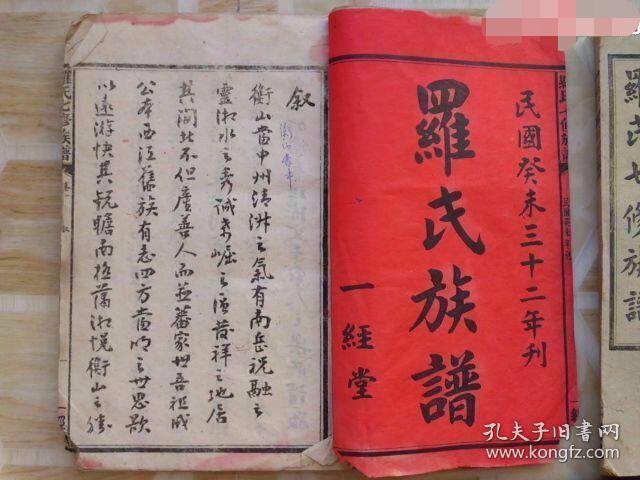 民國癸未三十二年刊
羅氏族譜
一經堂
叙
衡山當中州清淑之氣有南岳祝融之
靈湘水之秀誠奇崛之須發祥之地居
其間者不但產善人而並蕃家世吾祖成
公本西江舊族有志四方當明之世思歇
以遠游快其筑瞻南極蕩湘幌衡山之
羅氏七修族譜
羅氏七修族譜
孔夫子旧书网
www.kongfz.com